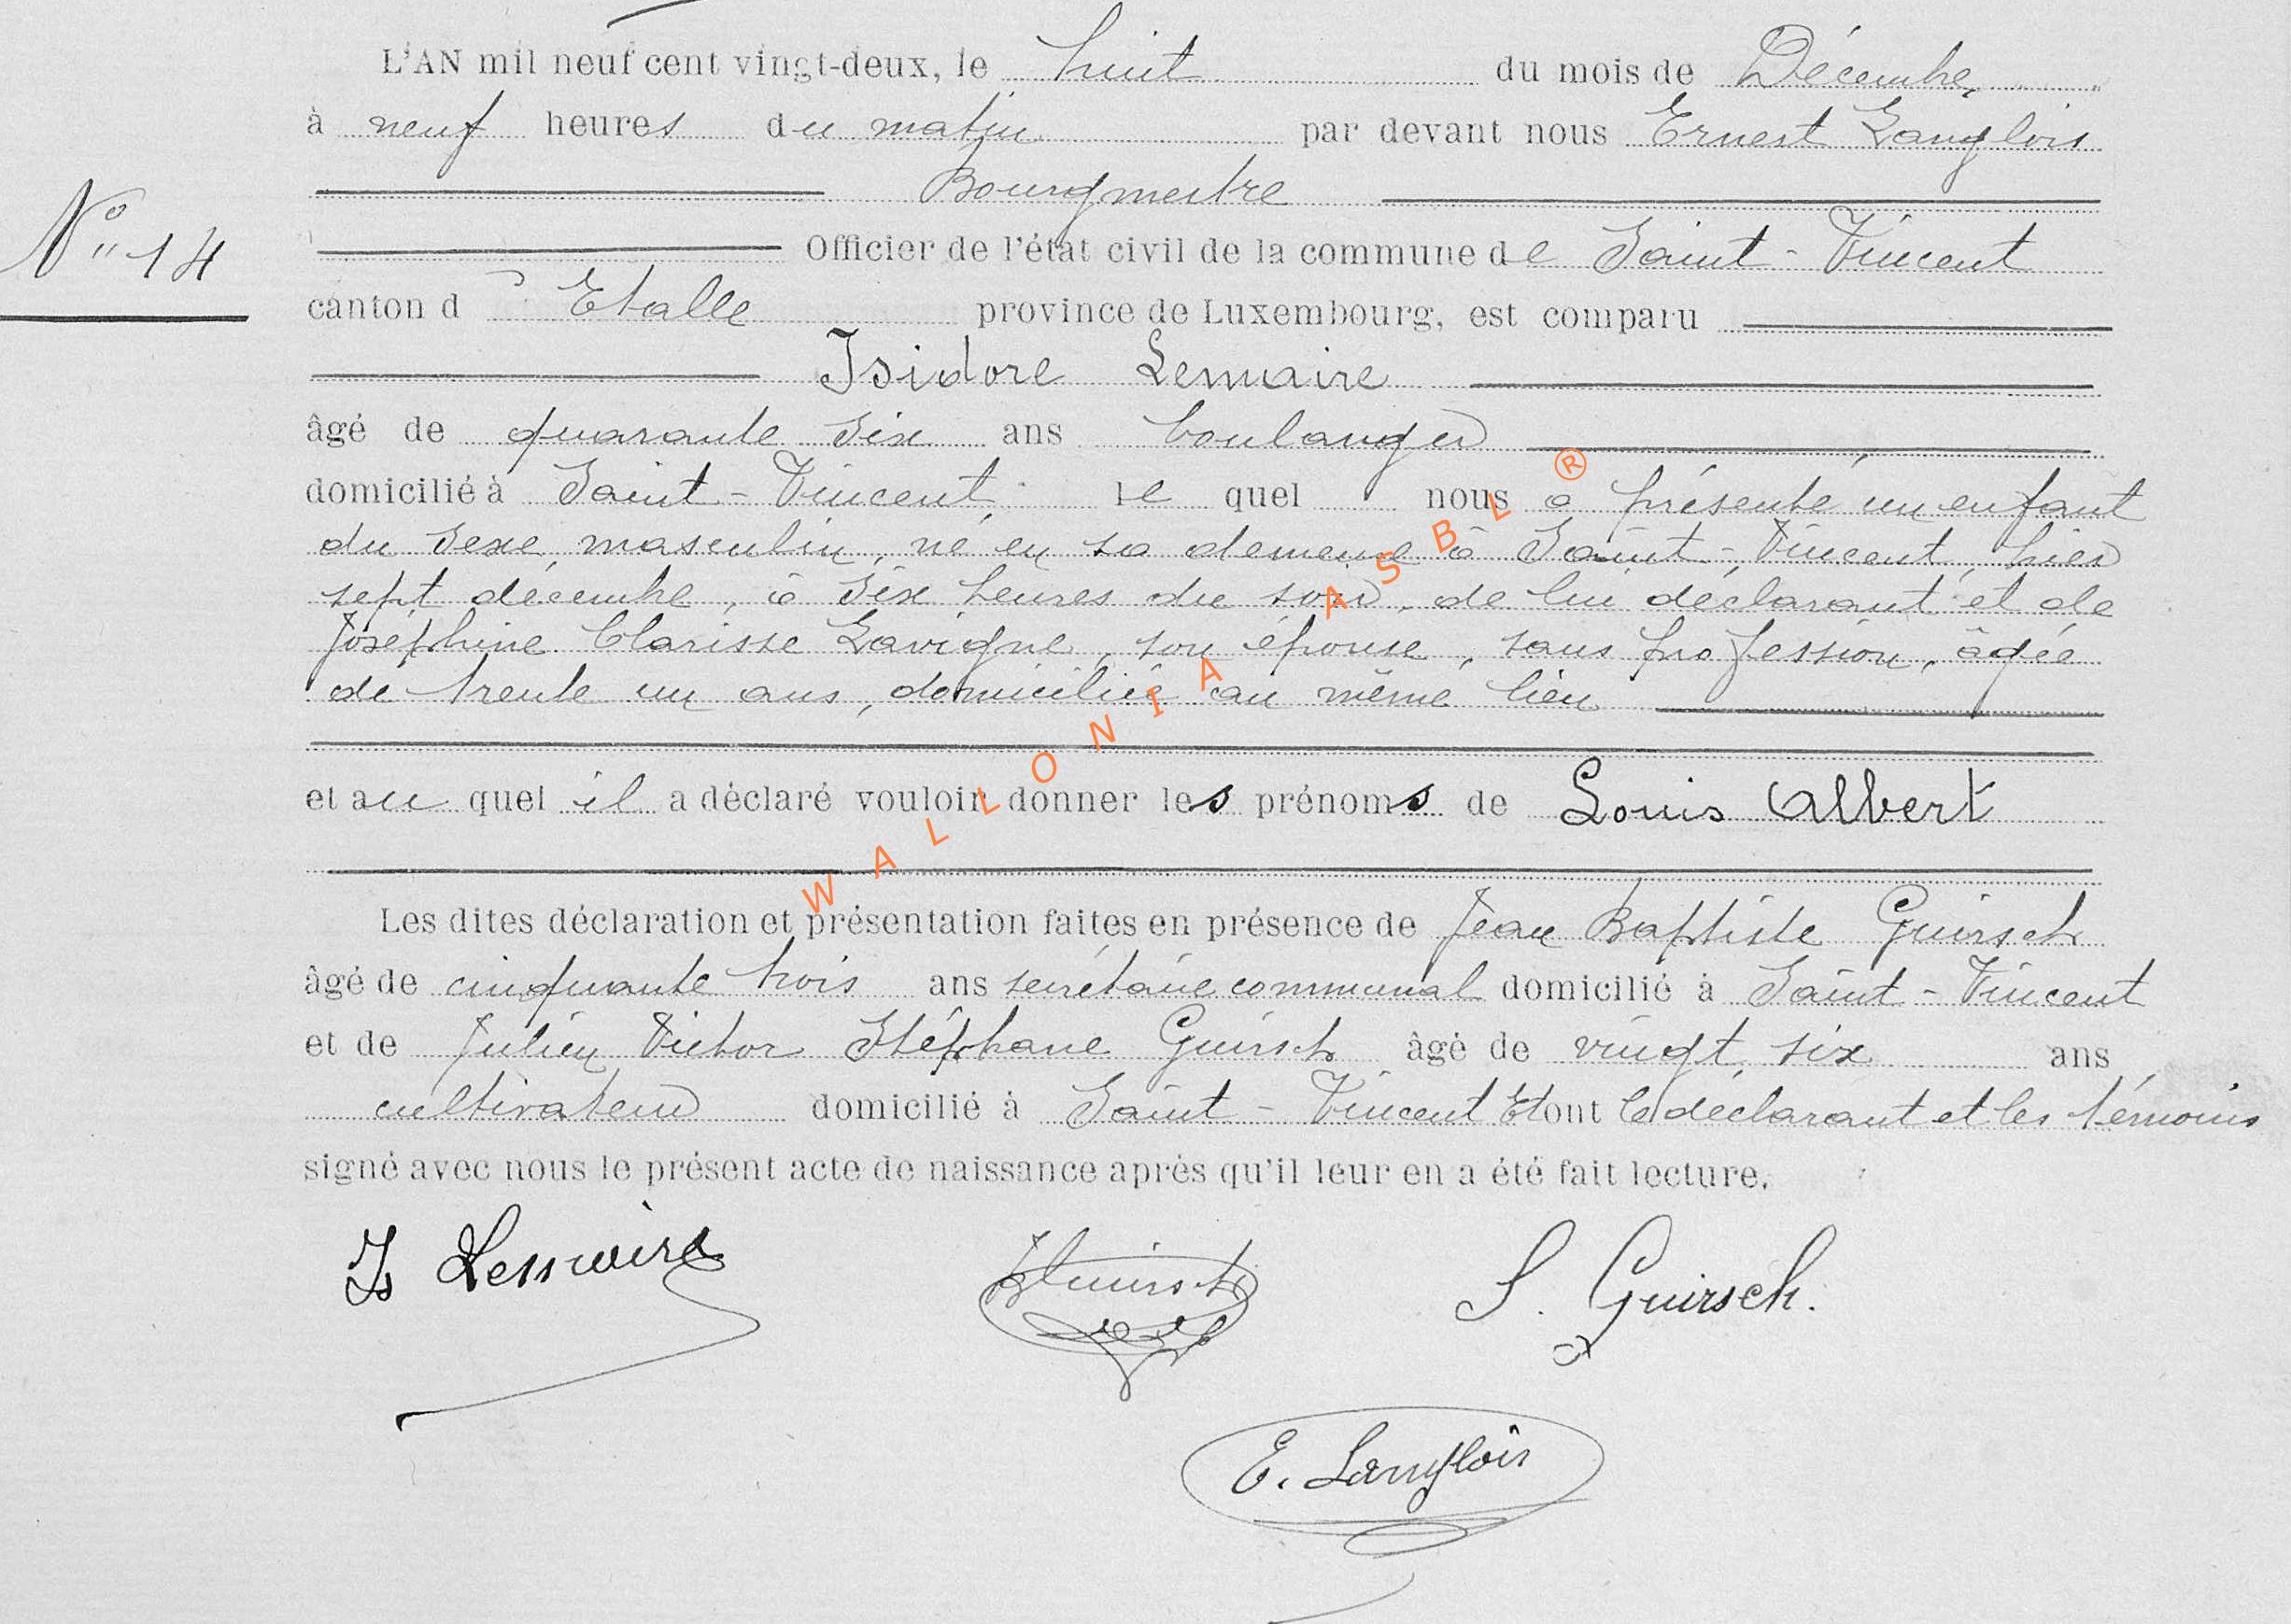 L'AN mil neuf cent vingt-deux, le huit du mois de Décembre,
à neuf heures du matin par devant nous Ernest Langlois
Bourgmestre
N° 14
Officier de l'état civil de la commune de Saint-Vincent
canton d'Etalle province de Luxembourg, est comparu
Isidore Lemaire
âgé de quarante six ans boulanger
domicilié à Saint-Vincent, le quel nous a présenté un enfant
du sexe masculin, né en sa demeure à Saint-Vincent, hier
sept décembre, à six heures du soir, de lui déclarant et de
Joséphine Clarisse Lavigne, son épouse, sans profession, âgée
de trente un ans, domiciliée au même lieu
et au quel il a déclaré vouloir donner les prénoms de Louis Albert
Les dites déclaration et présentation faites en présence de Jean Baptiste Guirsch
âgé de cinquante trois ans secrétaire communal domicilié à Saint-Vincent
et de Julien Victor Stéphane Guirsch âgé de vingt six ans
cultivateur domicilié à Saint-Vincent Et ont le déclarant et les témoins
signé avec nous le présent acte de naissance après qu'il leur en a été fait lecture.
Is Lemaire Guirsch S. Guirsch.
E. Langlois
WALLONIA ASBL ®